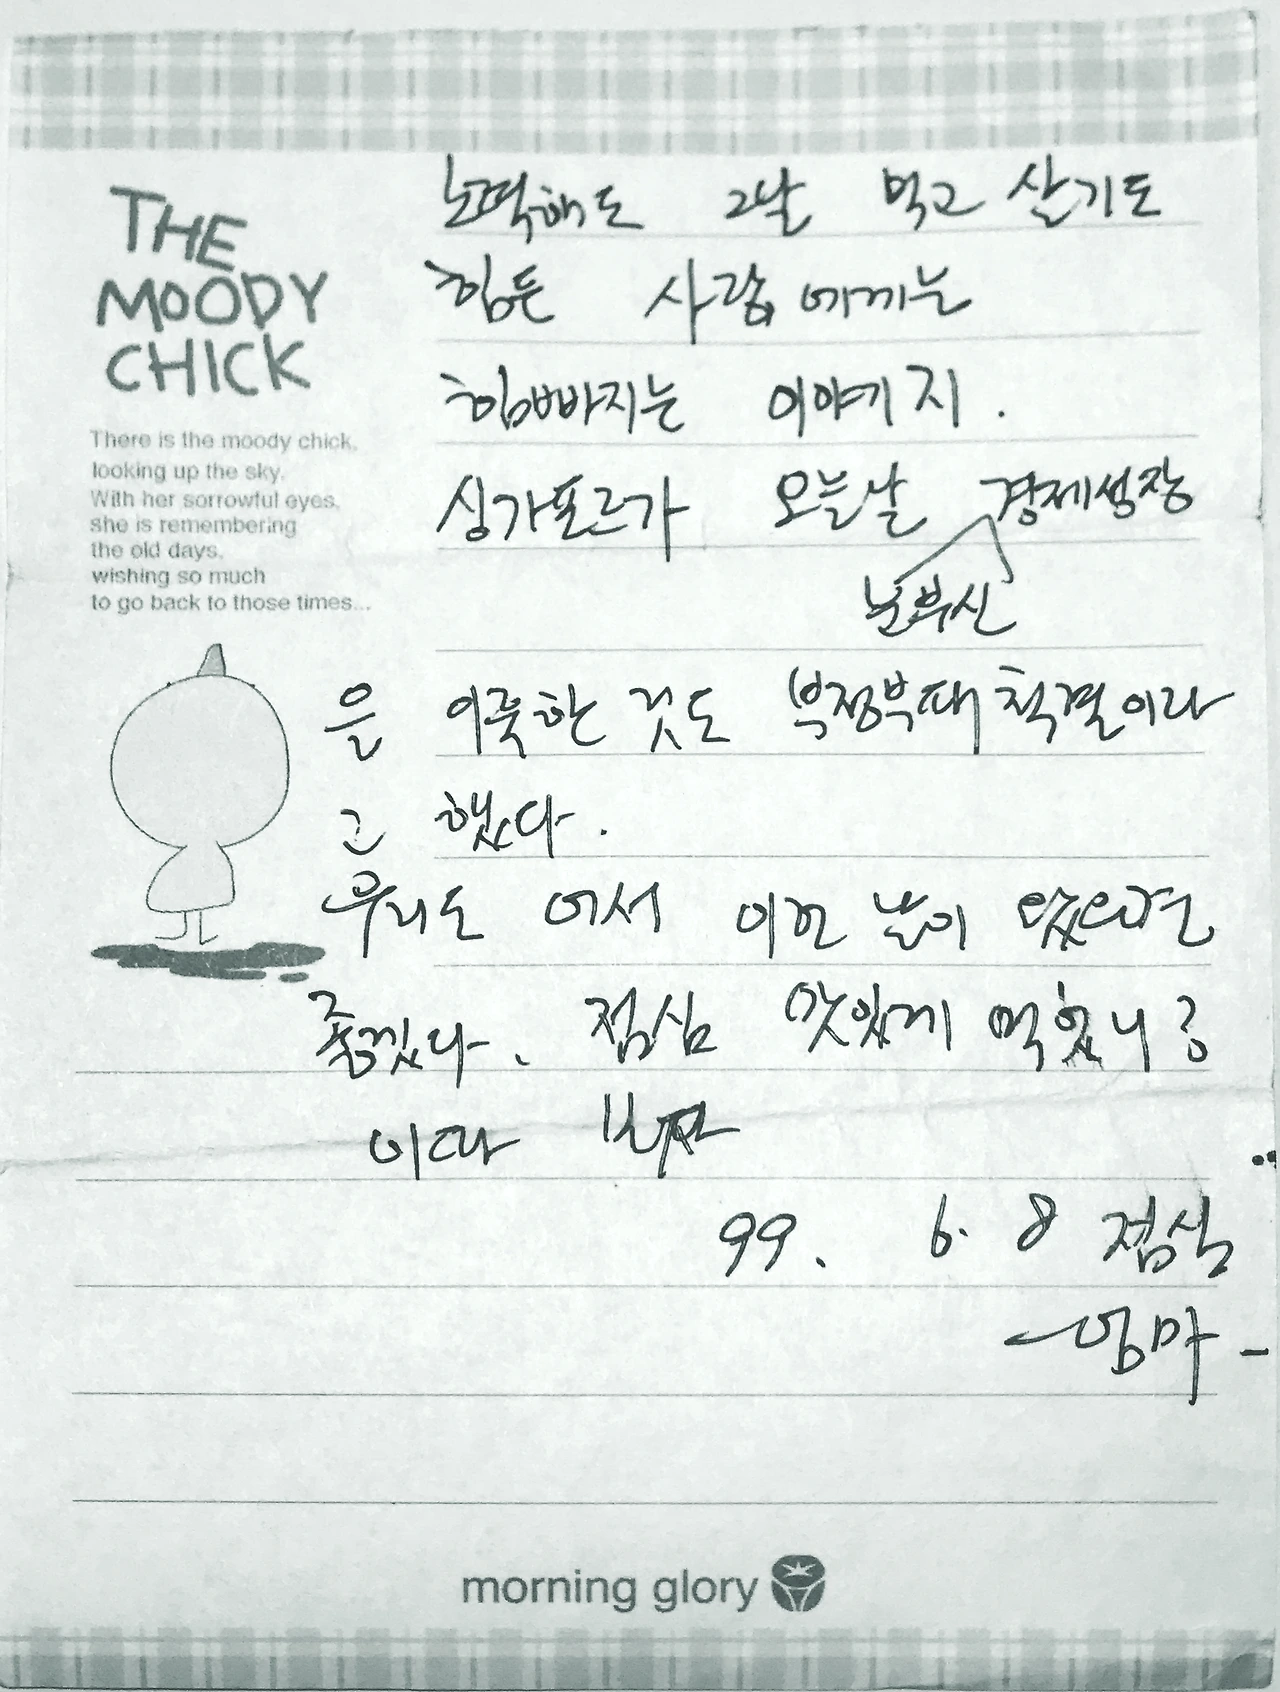 THE
MOODY
CHICK
There is the moody chick,
looking up the sky.
With her sorrowful eyes,
she is remembering
the old days,
wishing so much
to go back to those times...
노력해도 그날 먹고 살기도
힘든 사람에게는
힘빠지는 이야기지.
싱가포르가 오늘날 경제성장
눈부신
을 이룩한 것도 부정부패 척결이라
고 했다.
우리도 어서 이런 날이 왔으면
좋겠다. 점심 맛있게 먹었니?
이따 보자
99. 6. 8 점심
엄마 -
morning glory